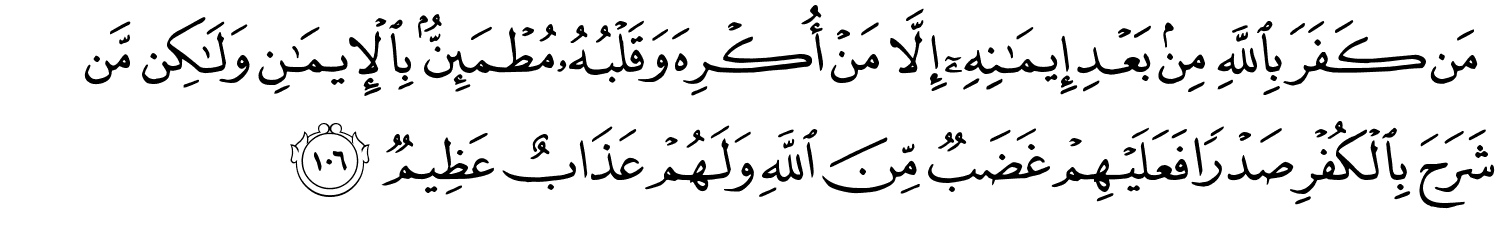 مَن كَفَرَ بِٱللَّهِ مِنۢ بَعْدِ إِيمَـٰنِهِۦٓ إِلَّا مَنْ أُكْرِهَ وَقَلْبُهُۥ مُطْمَئِنٌّۢ بِٱلْإِيمَـٰنِ وَلَـٰكِن مَّن
شَرَحَ بِٱلْكُفْرِ صَدْرًا فَعَلَيْهِمْ غَضَبٌ مِّنَ ٱللَّهِ وَلَهُمْ عَذَابٌ عَظِيمٌ ١٠٦